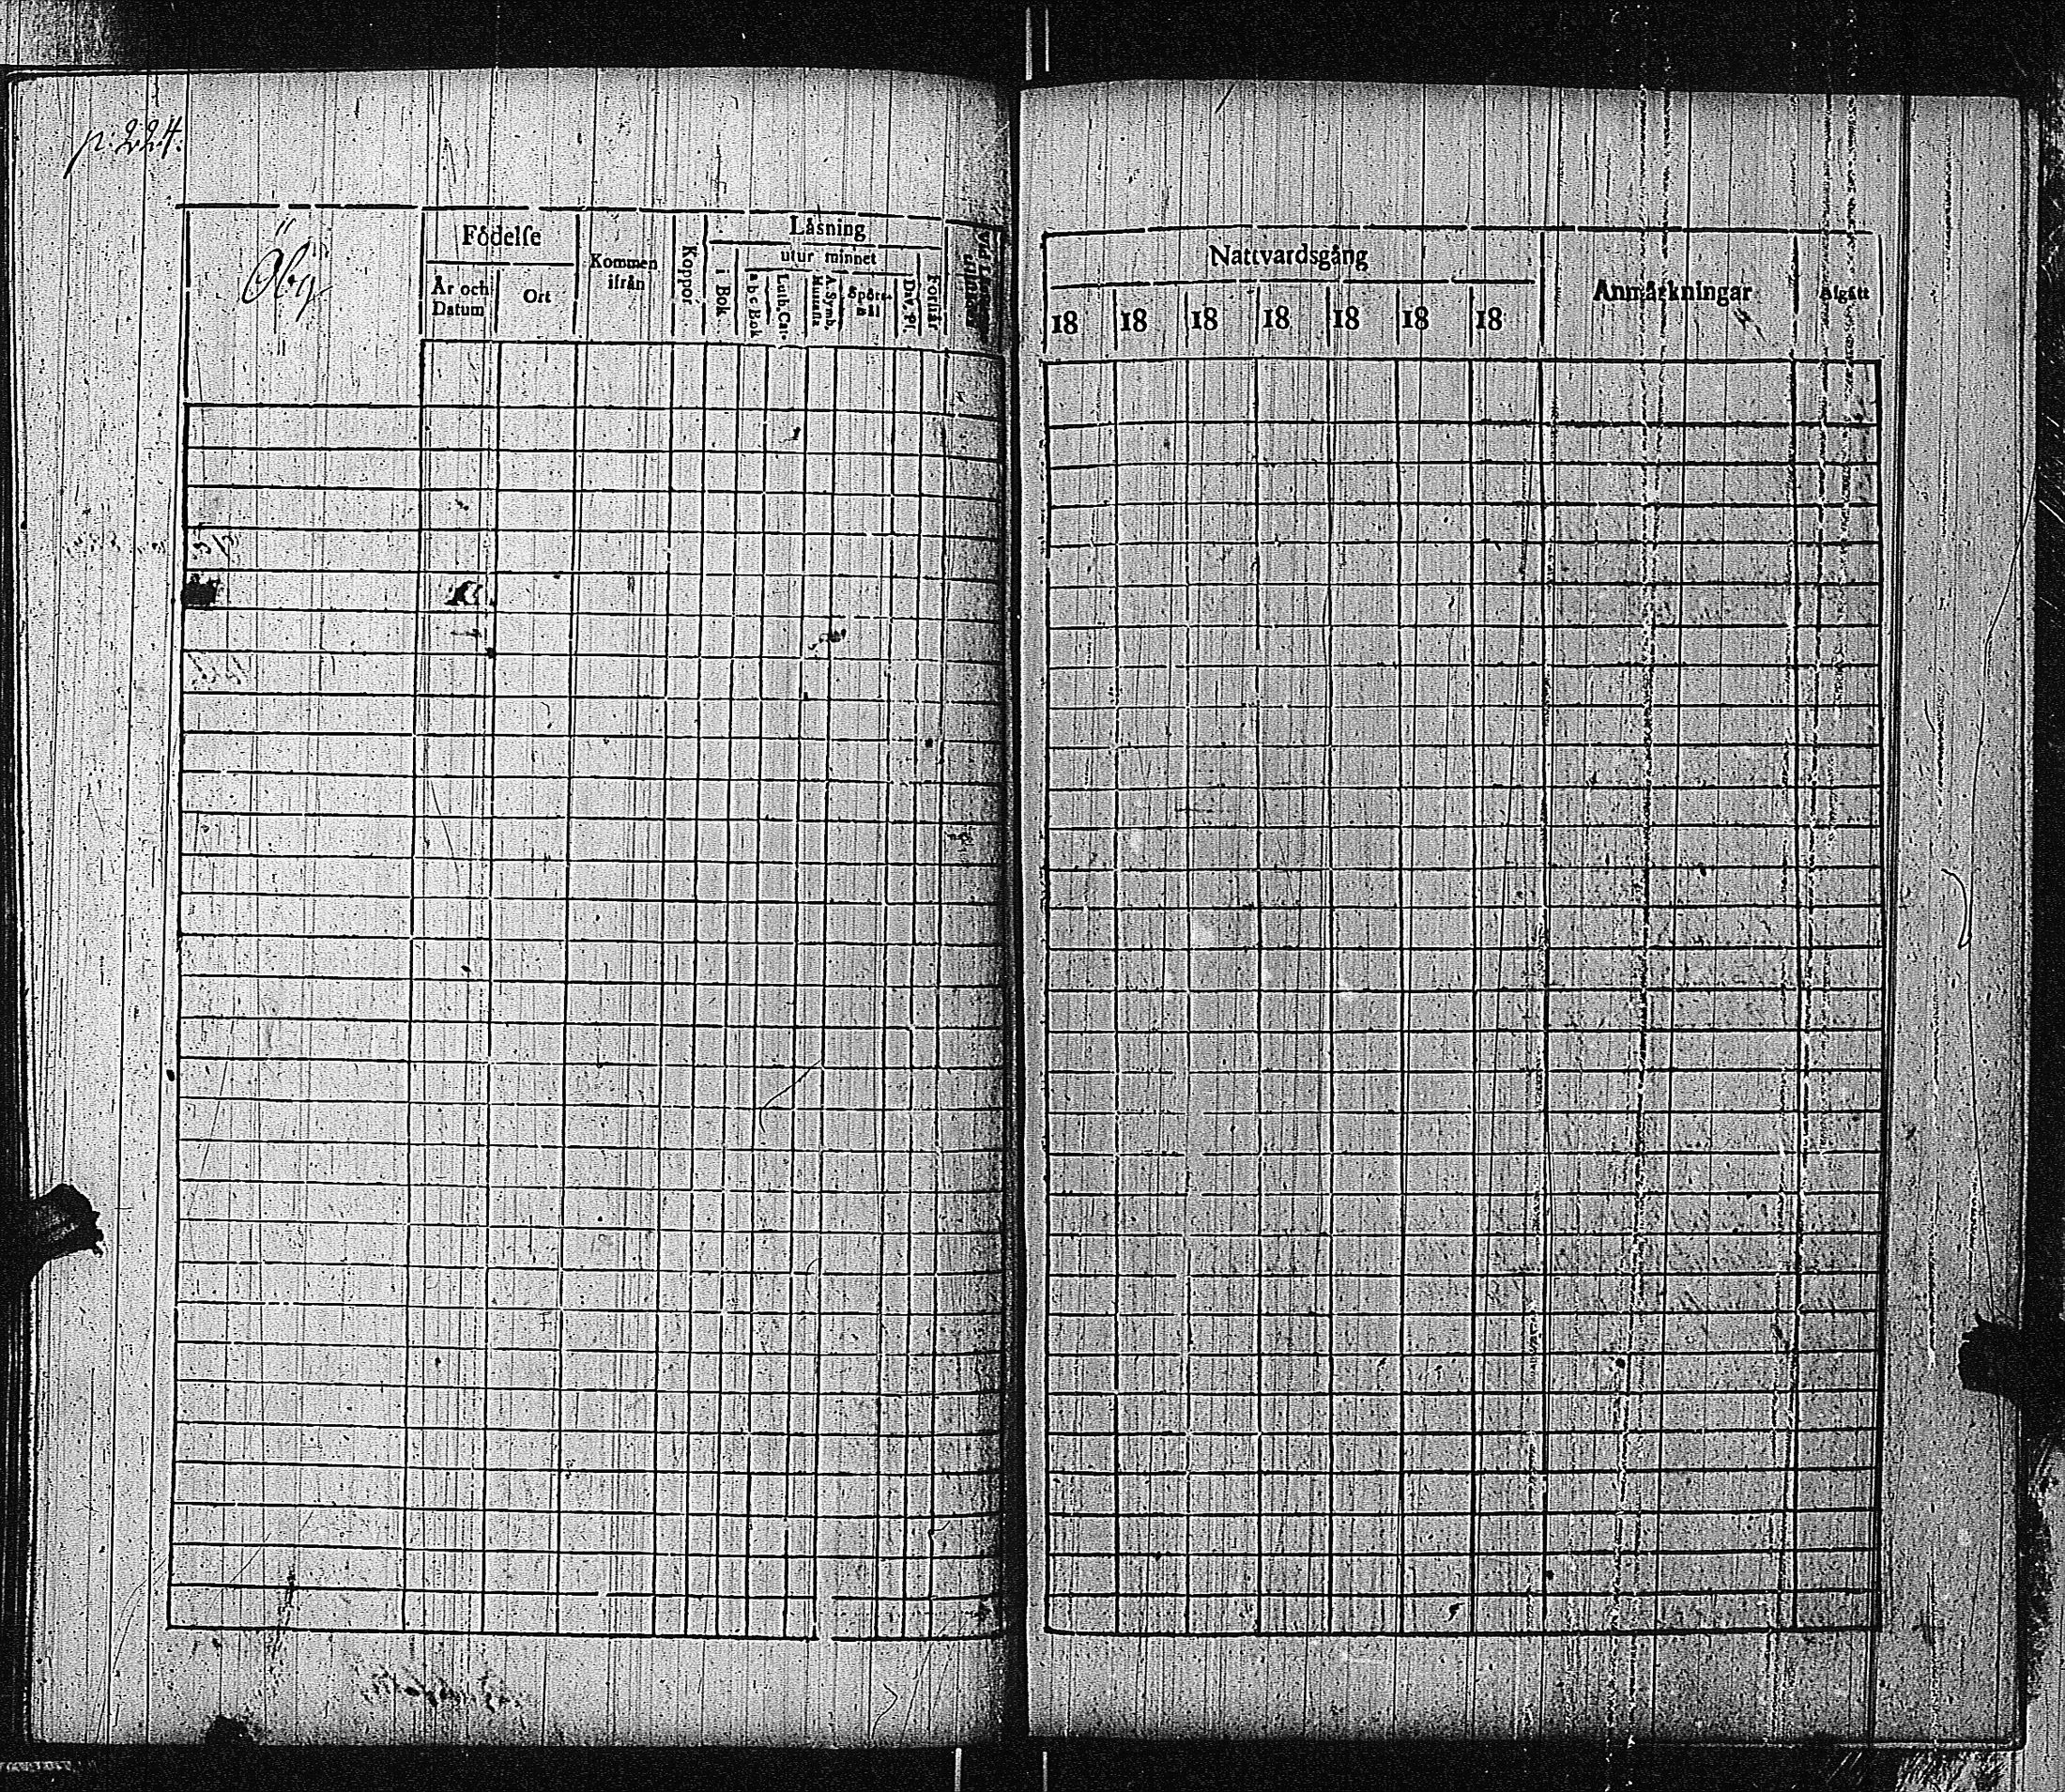 p. 224.
Öby
Födelſe
År och Datum
Ort
Kommen ifrån
Koppor.
Läsning
i Bok
utur minnet
a b c Bok
Luth. Cat.
A. Symb.
Huustafla
Spörs-
mål
Dav. Ps.
Förstår
Nattvardsgång
18 18 18 18 18 18 18
Anmärkningar
Afgått